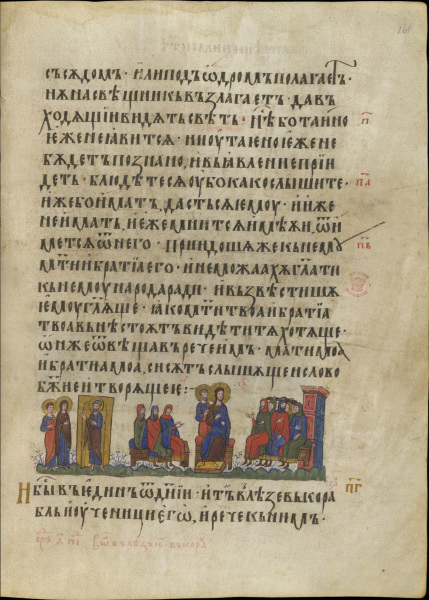 161
съсѫдомъ · или подъ ѡдромъ полагаетъ ·
нѫ на свѣщникъ възлагаетъ · да въ
ходѧщїи видѧтъ свѣтъ · Нѣ бо таино
еже не ꙗвитсѧ · ни оутаено еже не
бѫдетъ познано, и въ ꙗвление прїи
детъ · блюдѣтесѧ оубо како слышите ·
иже бо иматъ, дастьсѧ емоу · и иже
не иматъ, и еже мнитсѧ имѣѧи, ѿи
метсѧ ѿ него · Прїидошѧ же къ немоу
мт҃и и братїа его · и не можаахѫ гл҃ати
къ немоу народа ради · и възвѣстишѧ
емоу гл҃ѧще · ꙗко мт҃и твоа и братїа
твоа вънѣ стоѧтъ видѣти тѧ хотѧще ·
ѡн же ѿвѣщавъ рече имъ · мати моа
и братиа моа, си сѫтъ слышѧщеи слово
бж҃ие и творѧщеи е :
И бы҃ въ единъ ѿ дн҃їи · и тъ вълѣзе въ кора
бль и оученици его, и рече къ нимъ ·